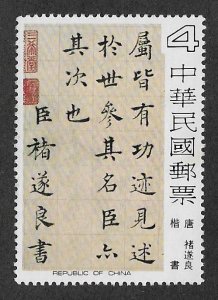 4
中華民國郵票
唐 褚遂良
楷書
屬皆有功迹見述
於世參其名臣亦
其次也
臣褚遂良書
REPUBLIC OF CHINA